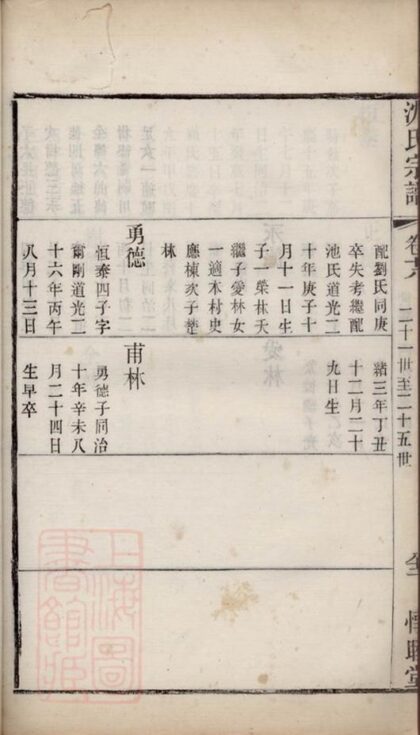 沈氏宗譜
二十一世至二十五世
配劉氏同庚
卒失考繼配
池氏道光二
十年庚子十
月十一日生
子一榮林夭
繼子愛林女
一適木村史
應棟次子楚
林
勇德
恆泰四子字
爾剛道光二
十六年丙午
八月十三日
緒三年丁丑
十二月二十
九日生
甫林
勇德子同治
十年辛未八
月二十四日
生早卒
上海圖
書館藏